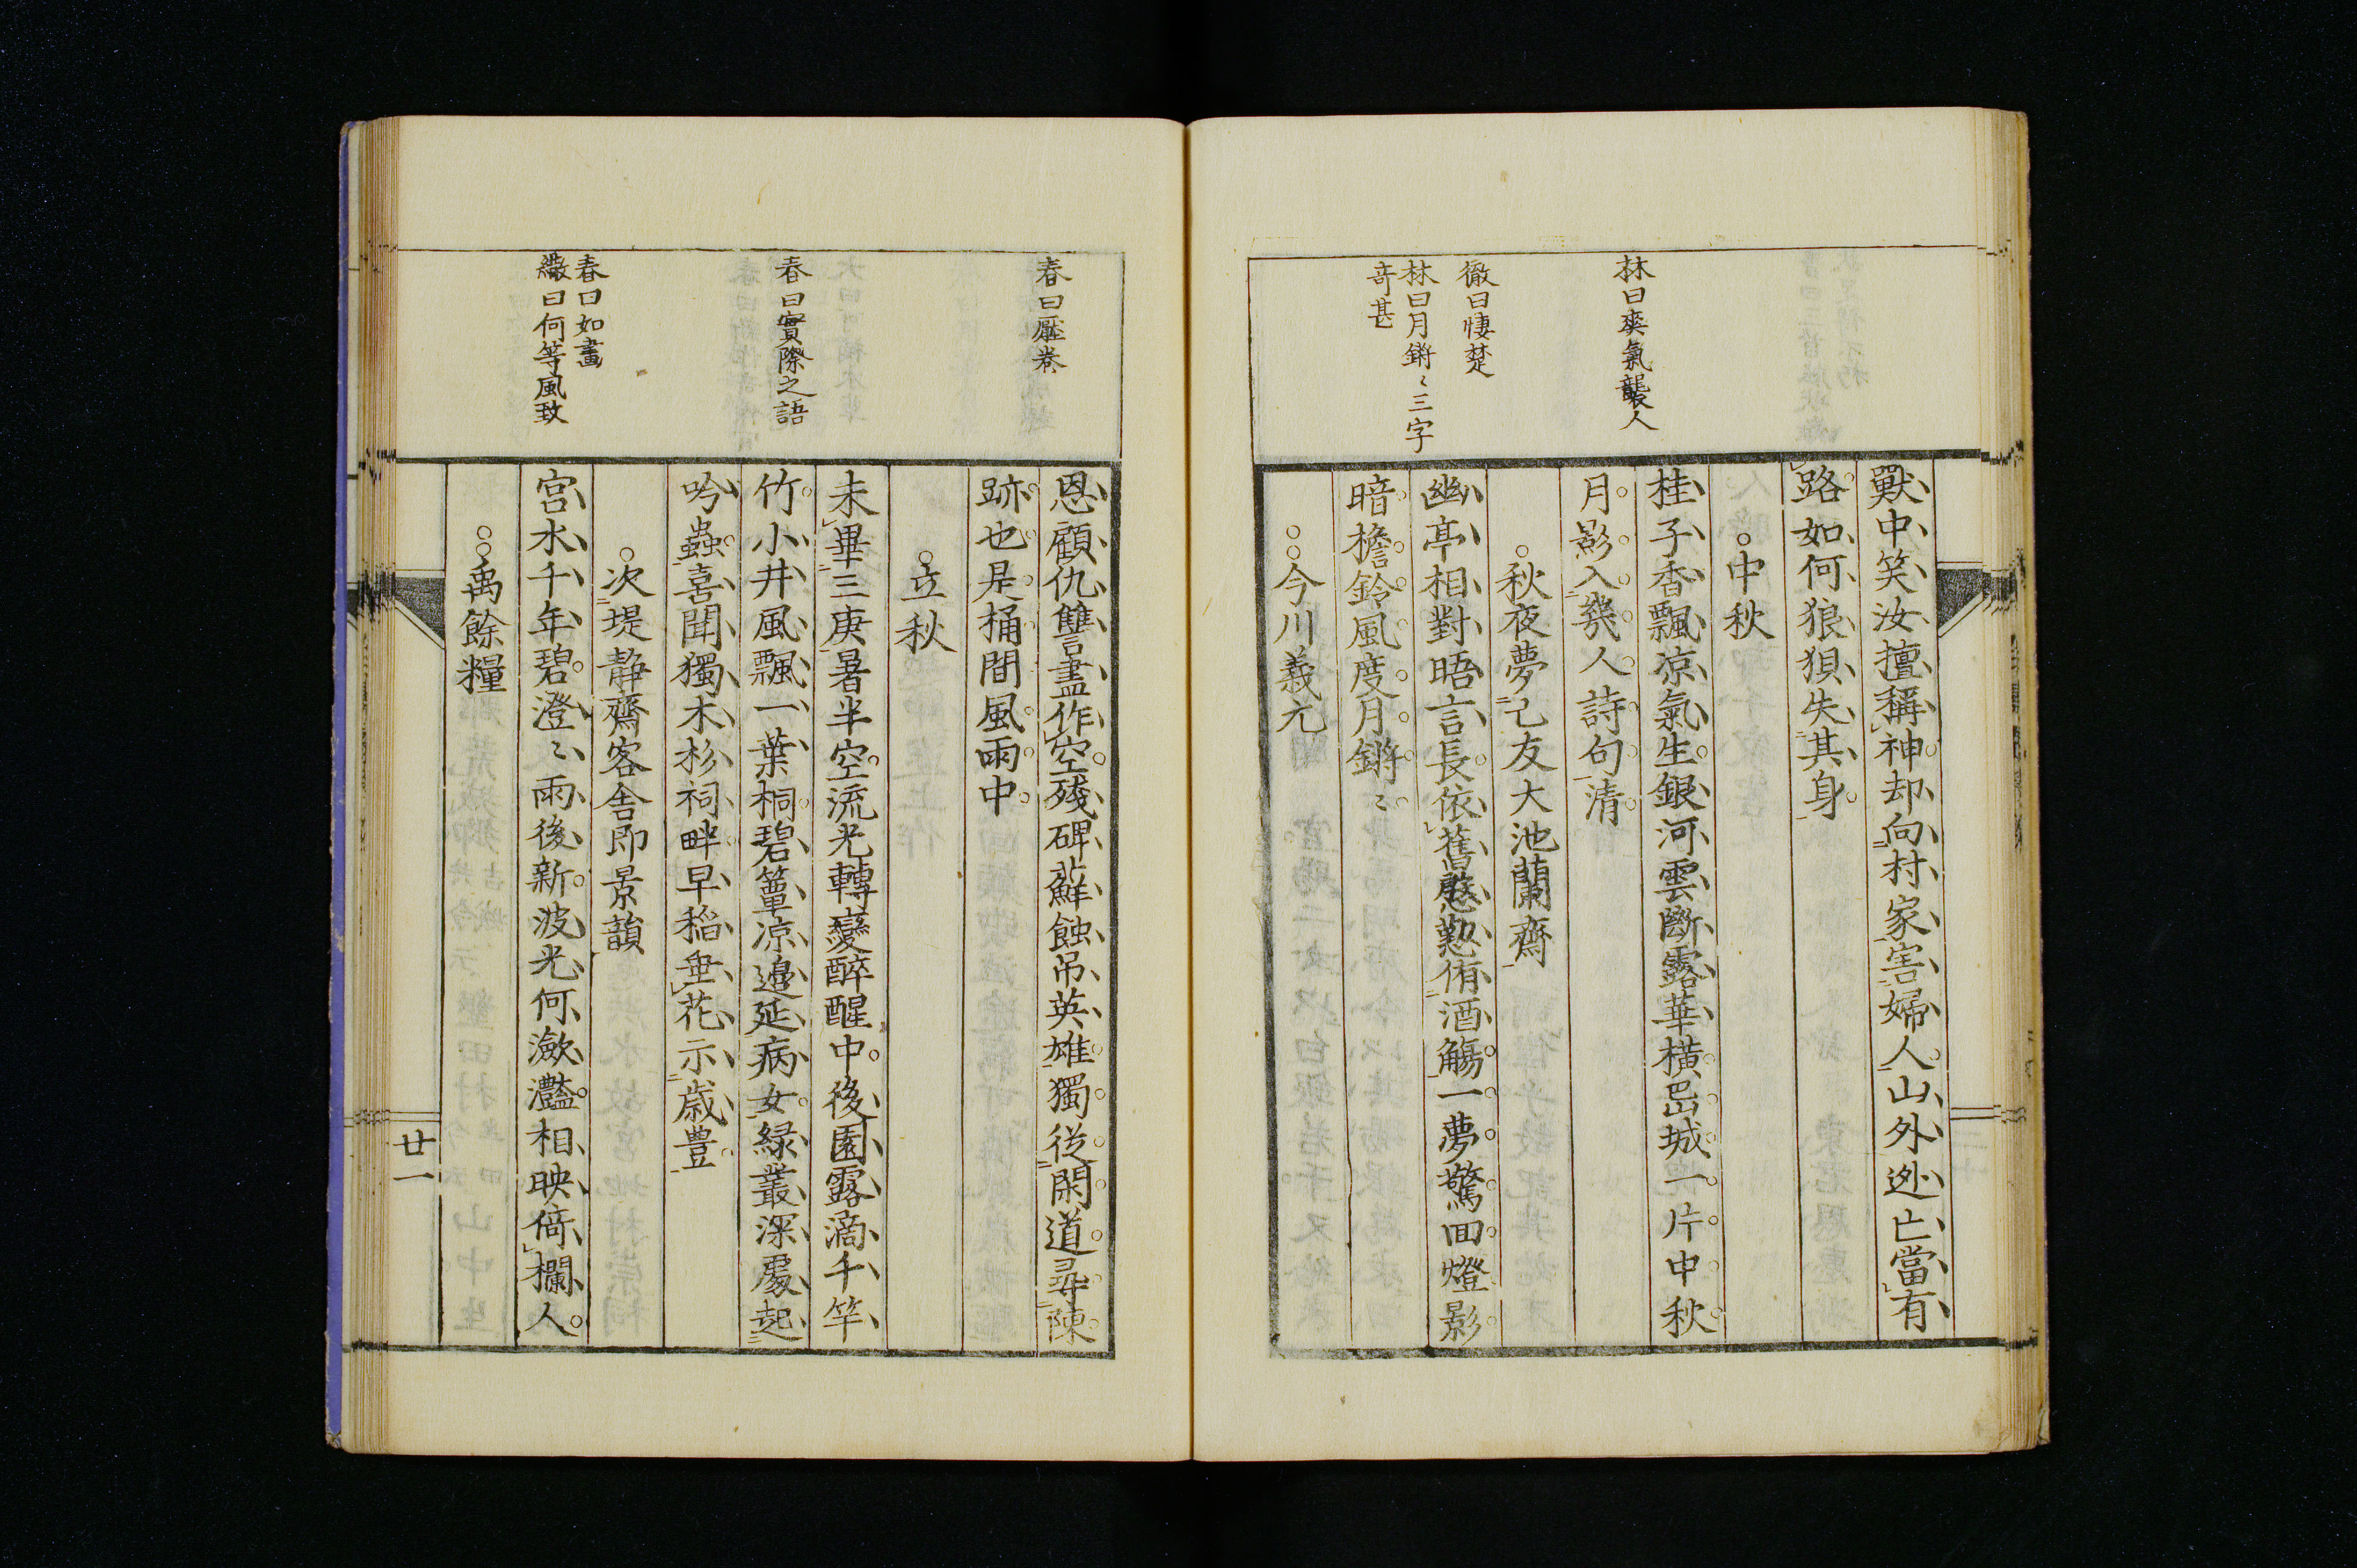 林曰爽氣襲人
徹曰悽楚
林曰月鏘〻三字
奇甚
獸中笑汝擅稱神却向村家害婦人山外逃亡當有
路如何狼狽失其身
中秋
桂子香飄凉氣生銀河雲斷露華橫邑城一片中秋
月影入幾人詩句清
秋夜夢亡友大池蘭齋
幽亭相對晤言長依舊慇懃侑酒觴一夢驚回燈影
暗檐鈴風度月鏘〻
今川義元
春曰壓卷
春曰實際之語
春曰如畫
徹曰何等風致
恩顧仇讐盡作空殘碑蘚蝕吊英雄獨從閑道尋陳
跡也是桶間風雨中
立秋
未畢三庚暑半空流光轉變醉醒中後園露滴千竿
竹小井風飄一葉桐碧簟凉邊延病女緑叢深處起
吟蟲喜聞獨木杉祠畔早稻垂花示歳豊
次堤静齋客舎即景韻
宮水千年碧澄〻雨後新波光何瀲灩相映倚欄人
禹餘糧
廿一